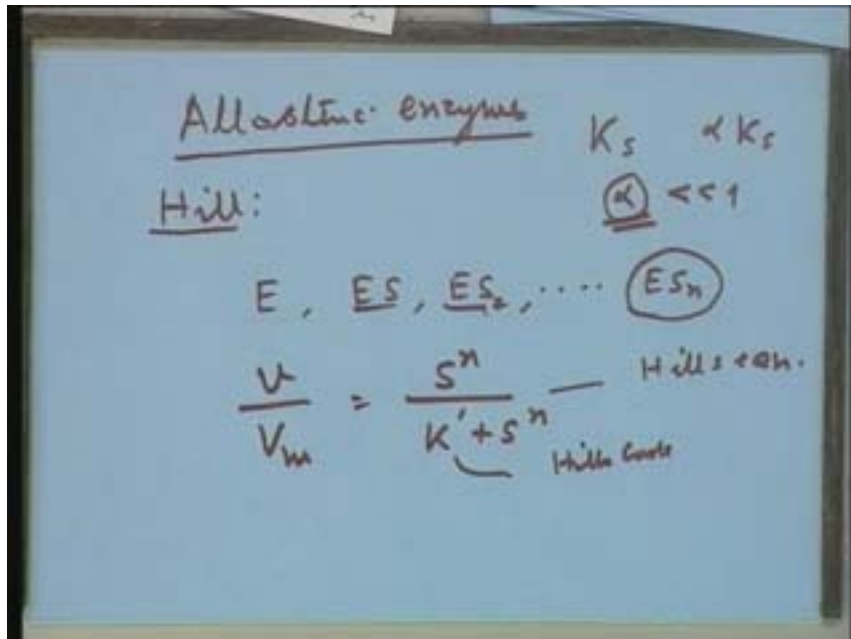 Allosteric enzymes
Ks αKs
Hill:
α << 1
E, ES, ES2, .... ESn
v / Vm = S^n / K' + S^n — Hills eqn.
Hills